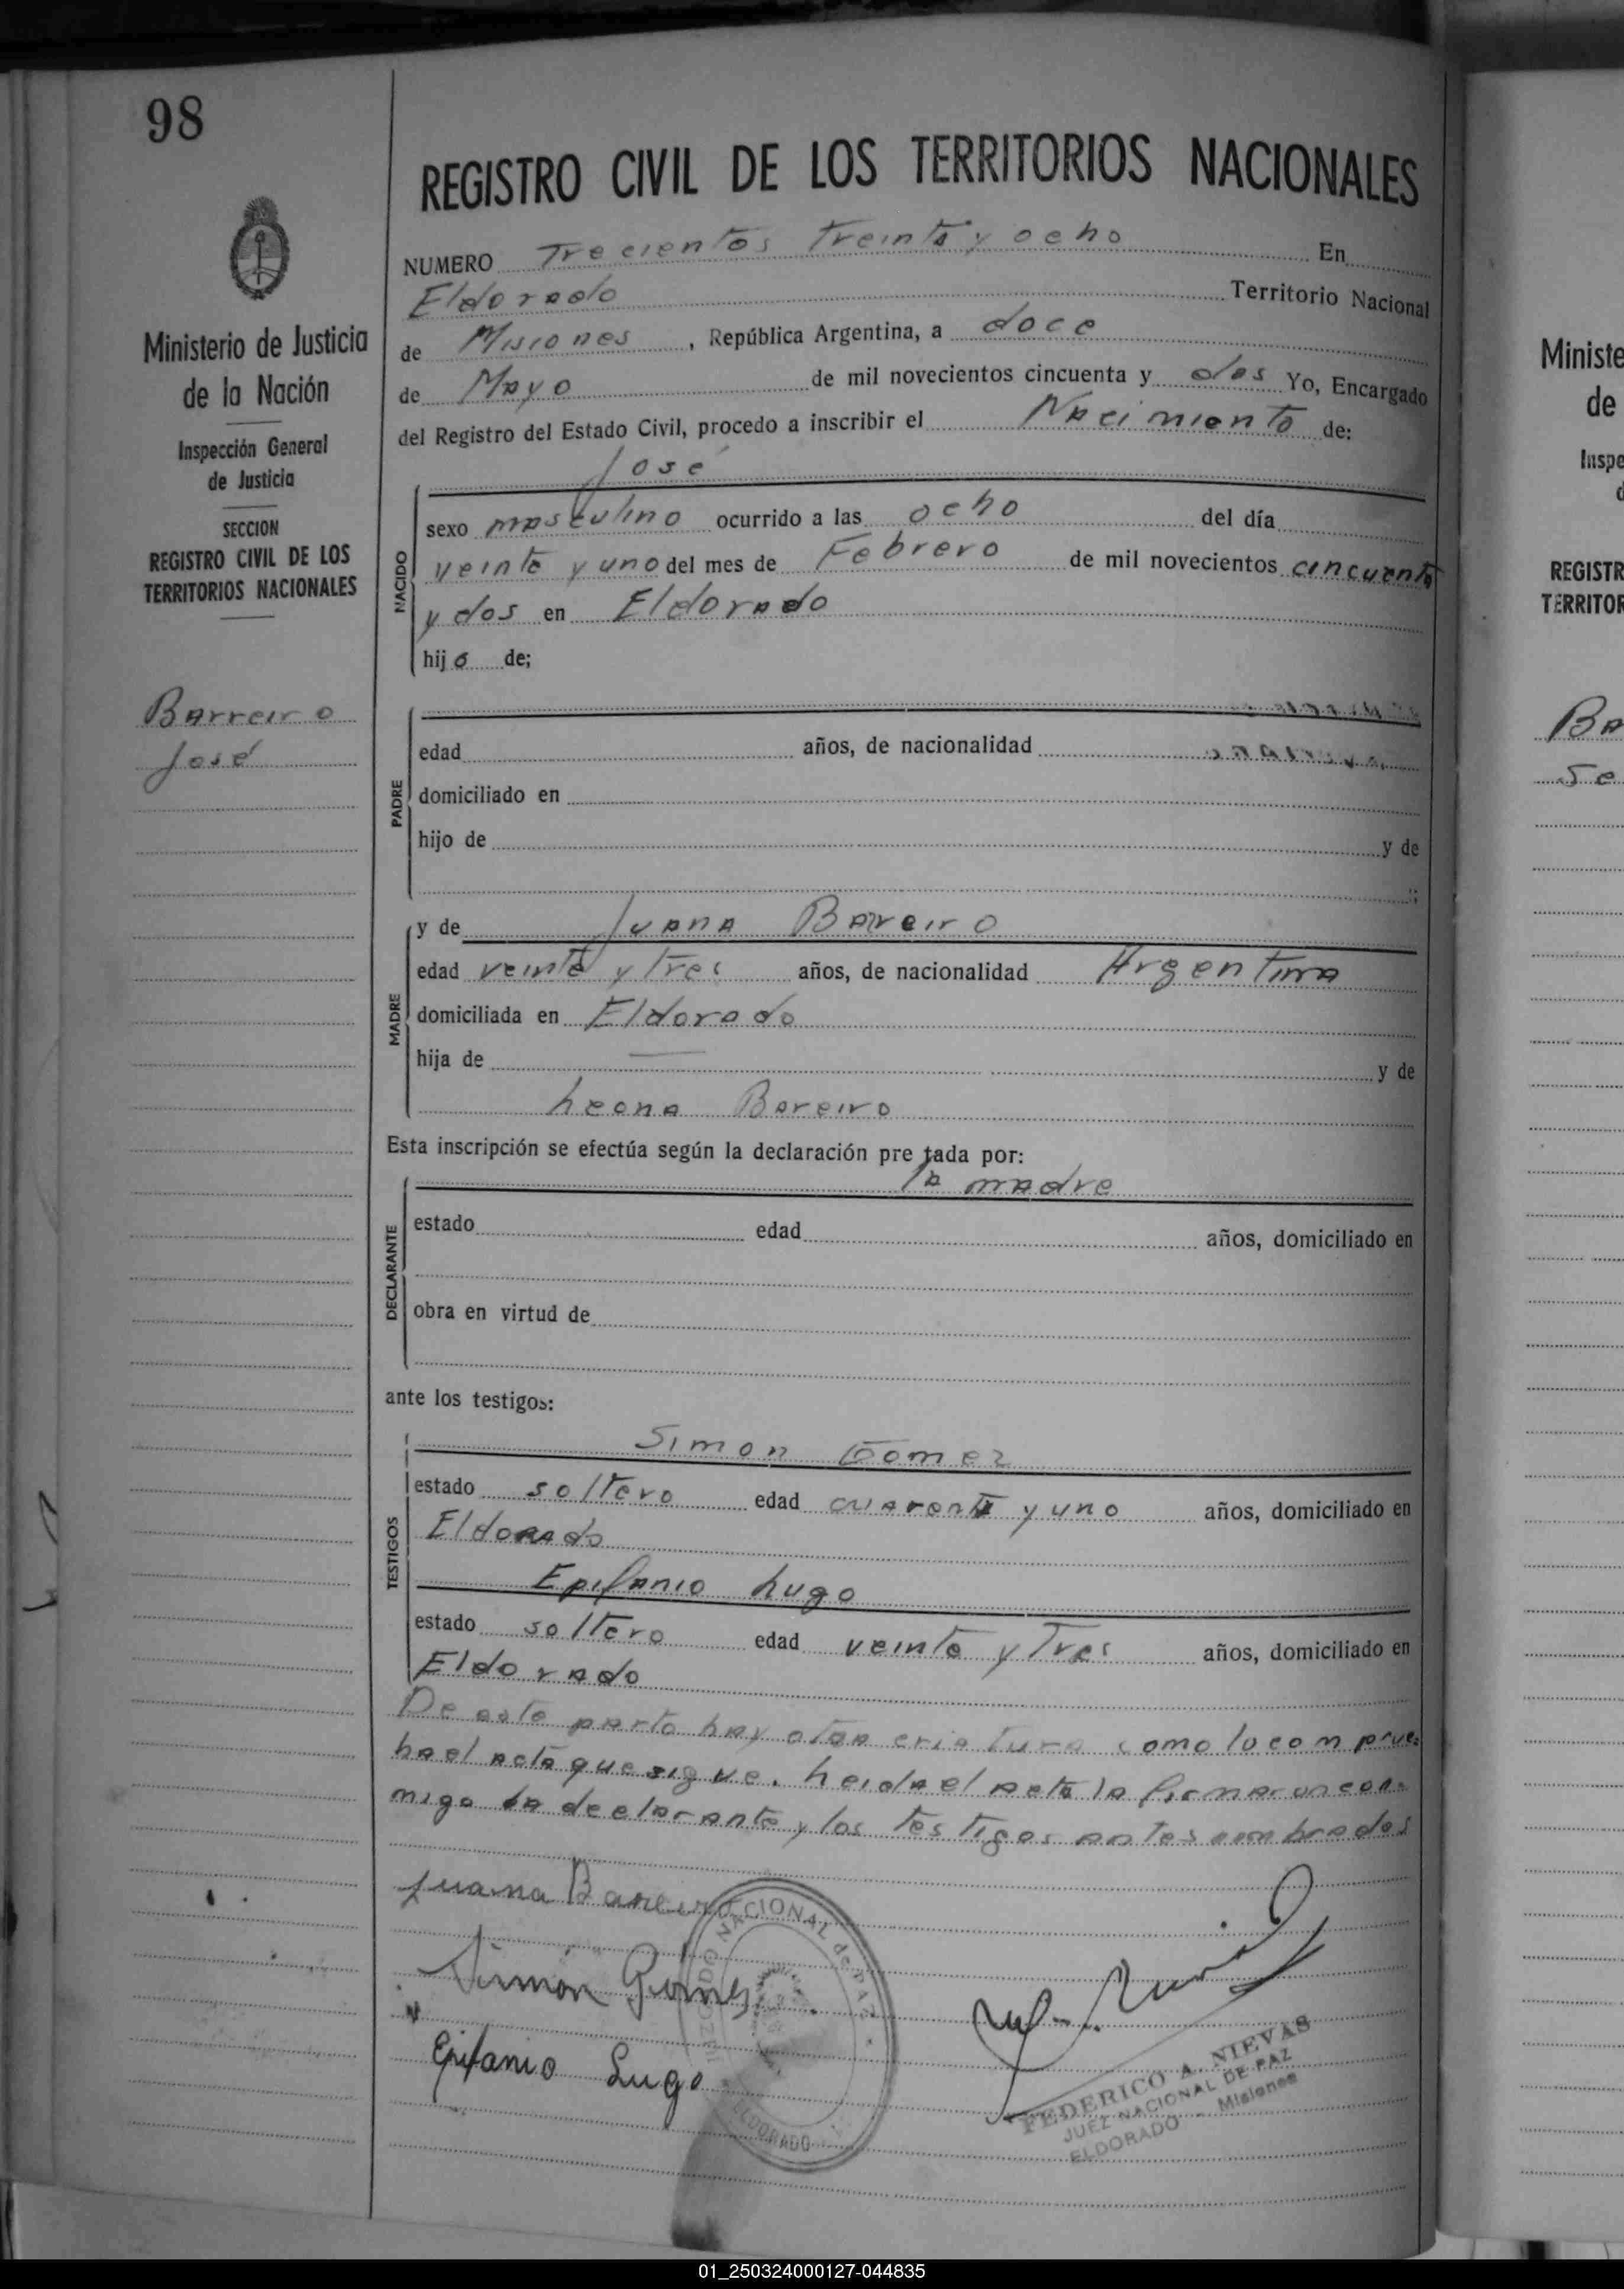 98
REGISTRO CIVIL DE LOS TERRITORIOS NACIONALES
Ministerio de Justicia
de la Nación
Inspección General
de Justicia
SECCION
REGISTRO CIVIL DE LOS
TERRITORIOS NACIONALES
Barreiro
José
NUMERO Trecientos treinta y ocho En
Eldorado Territorio Nacional
de Misiones, República Argentina, a doce
de Mayo de mil novecientos cincuenta y dos Yo, Encargado
del Registro del Estado Civil, procedo a inscribir el Nacimiento de:
José
NACIDO
sexo masculino ocurrido a las ocho del día
veinte y uno del mes de Febrero de mil novecientos cincuenta
y dos en Eldorado
hijo de;
PADRE
edad años, de nacionalidad
domiciliado en
hijo de y de
MADRE
y de Juana Bareiro
edad veinte y tres años, de nacionalidad Argentina
domiciliada en Eldorado
hija de — y de
Leona Bareiro
Esta inscripción se efectúa según la declaración pre tada por:
la madre
DECLARANTE
estado edad años, domiciliado en
obra en virtud de
ante los testigos:
TESTIGOS
Simon Gomez
estado soltero edad cuarenta y uno años, domiciliado en
Eldorado
Epifanio Lugo
estado soltero edad veinte y tres años, domiciliado en
Eldorado
De este parto hay otra criatura como lo comprue-
ba el acta que sigue. Leida el acta la firmaron con-
migo la declarante y los testigos antes nombrados
Juana Bareiro
Simón Gómes
Epifanio Lugo
JUZGADO NACIONAL de PAZ
ELDORADO
FEDERICO A. NIEVAS
JUEZ NACIONAL DE PAZ
ELDORADO - Misiones
Ministe
de
Inspe
d
REGISTR
TERRITOR
Ba
Se
01_250324000127-044835